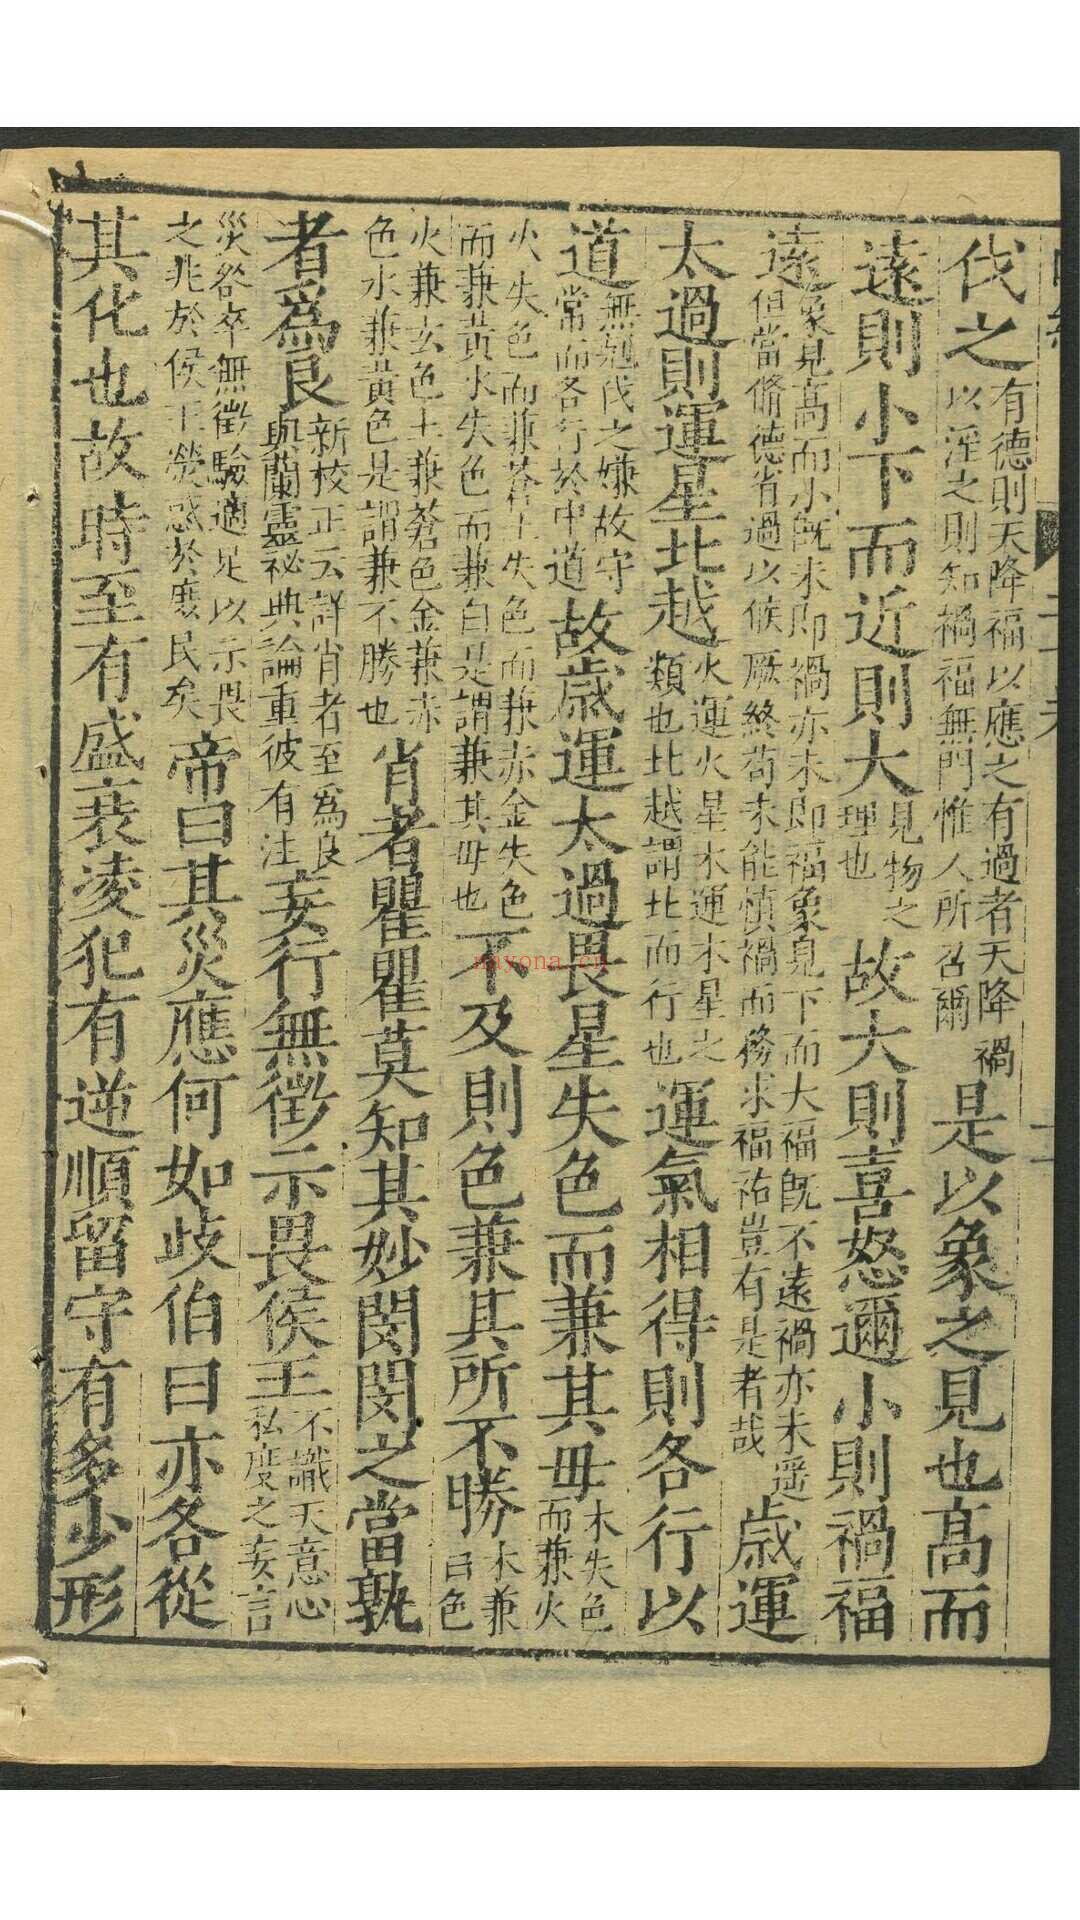 伐之有德則天降福以應之有過者天降禍以淫之則知禍福無門惟人所召爾是以象之見也高而
遠則小下而近則大見物之理也故大則喜怒邇小則禍福
遠象見高而小旣未即禍亦未即福象見下而大福旣不遠禍亦未遥但當脩德省過以候厥終苟未能慎禍而務求福祐豈有是者哉歲運
太過則運星北越火運火星木運木星之類也北越謂北而行也運氣相得則各行以
道無剋伐之嫌故守常而各行於中道故歲運太過畏星失色而兼其母木失色而兼火
火失色而兼蒼土失色而兼赤金失色而兼黃水失色而兼白是謂兼其母也不及則色兼其所不勝木兼白色
火兼玄色土兼蒼色金兼赤色水兼黃色是謂兼不勝也肖者瞿瞿莫知其妙閔閔之當孰
者爲良新校正云詳肖者至爲良與蘭靈祕典論重彼有注妄行無徵示畏侯王不識天意心私度之妄言
災咎卒無徵驗適足以示畏之兆於侯王熒惑於庶民矣帝曰其災應何如歧伯曰亦各從
其化也故時至有盛衰凌犯有逆順留守有多少形
nayona.cn